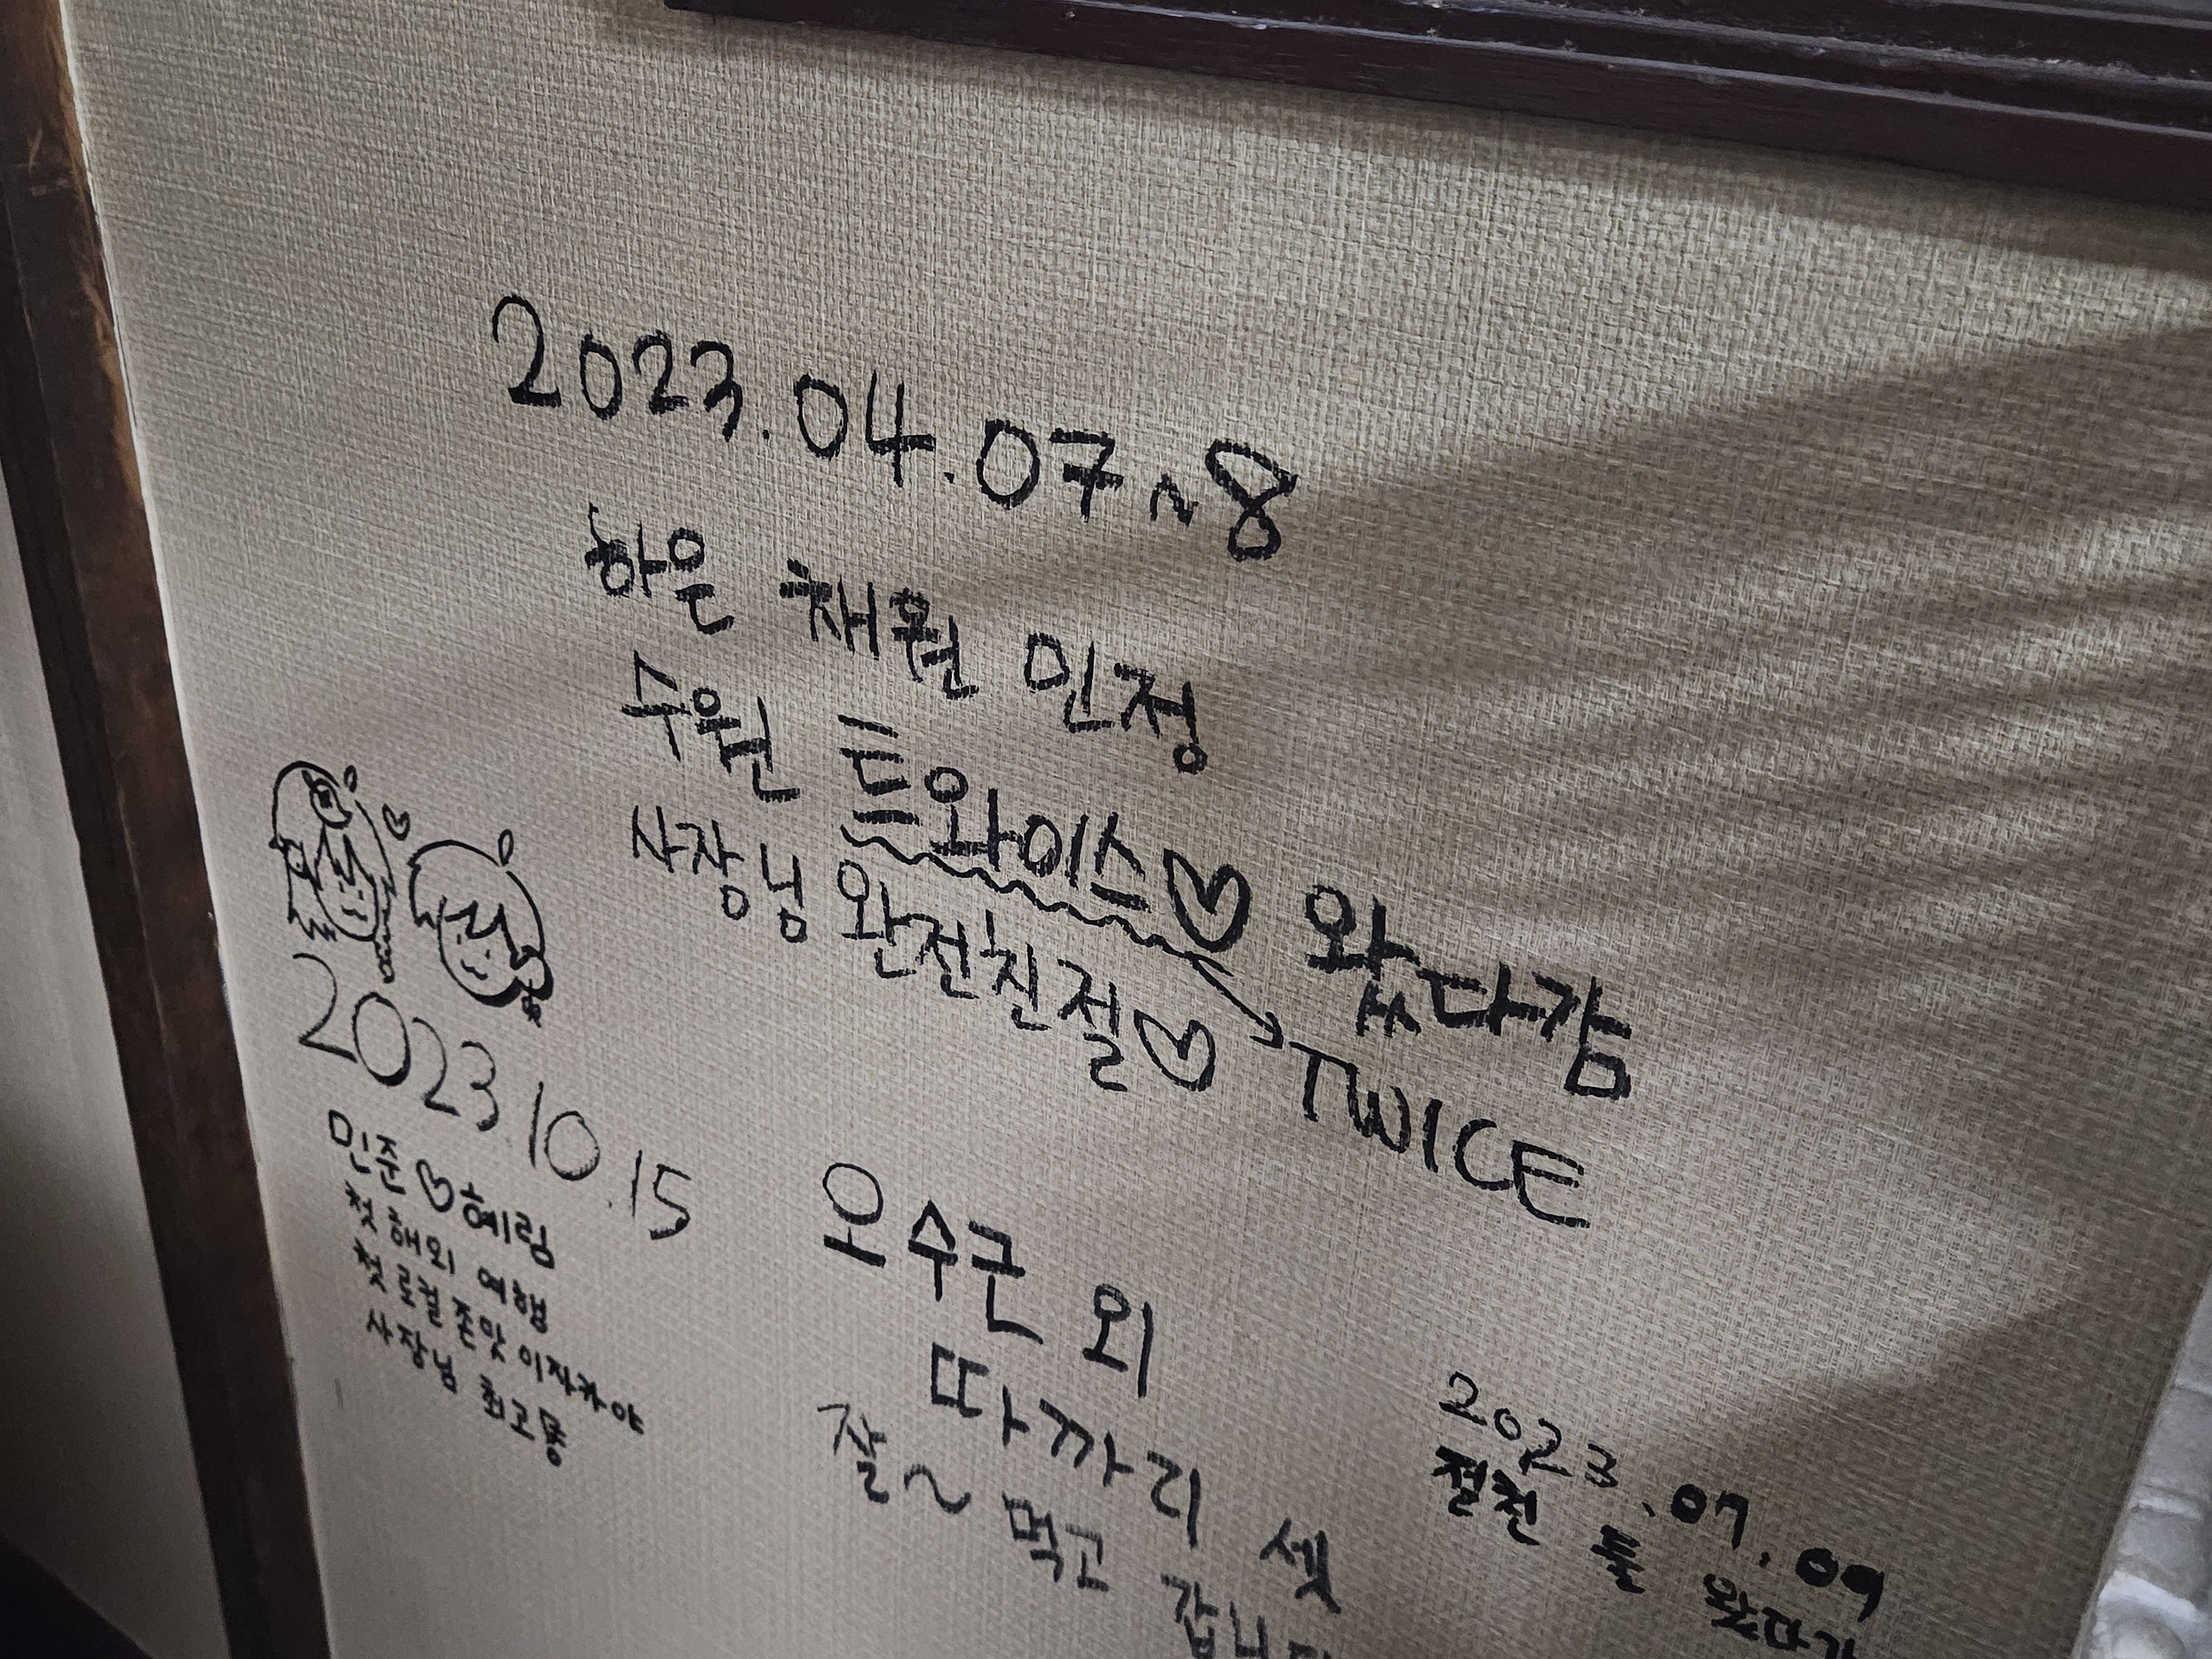 2023.04.07~8
하은 채원 인정
수원 트와이스♡ 왔다감
사장님 완전친절♡
TWICE
2023.10.15
민준♡혜림
첫 해외 여행
첫 로컬 존맛 이자카야
사장님 최고몽
오수근 외
따까리 셋
잘~ 먹고 갑니다
2023.07.09
절친 둘 왔다가